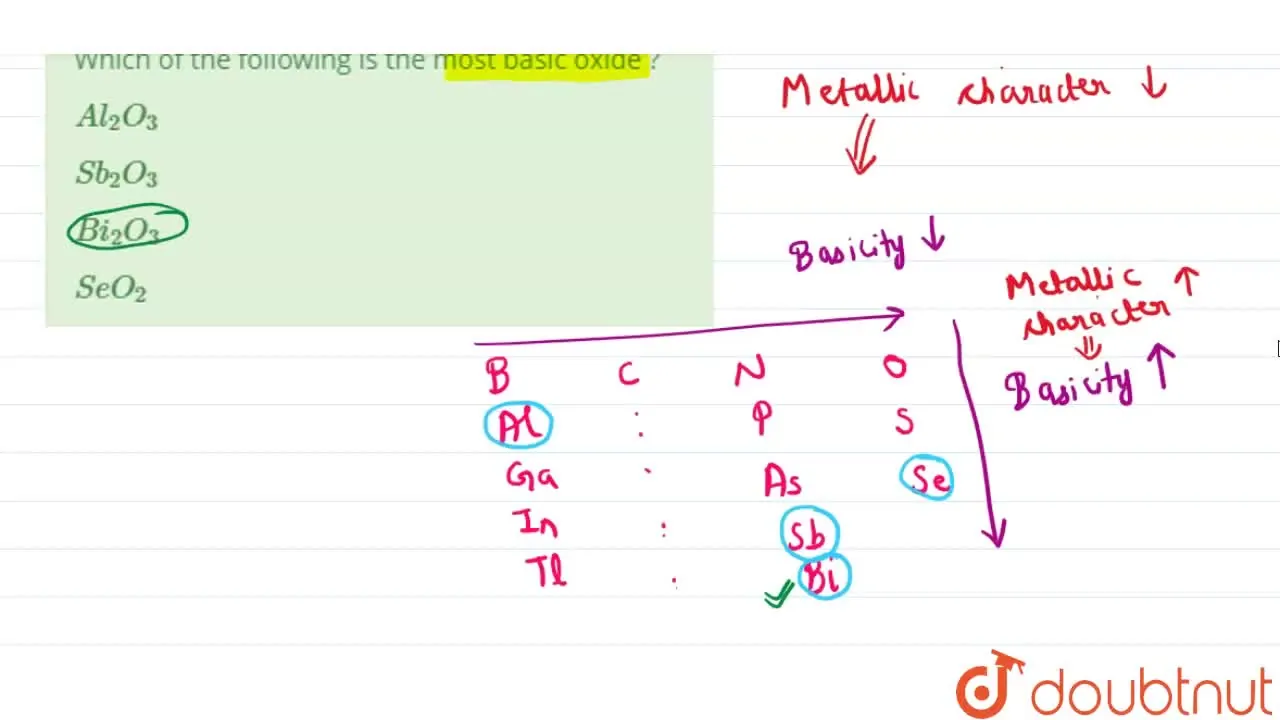 Which of the following is the most basic oxide ?
Al₂O₃
Sb₂O₃
Bi₂O₃
SeO₂
Metallic character ↓
⇓
Basicity ↓
Metallic ↑
character
⇓
Basicity ↑
B C N O
Al : P S
Ga . As Se
In : Sb
Tl . Bi
doubtnut